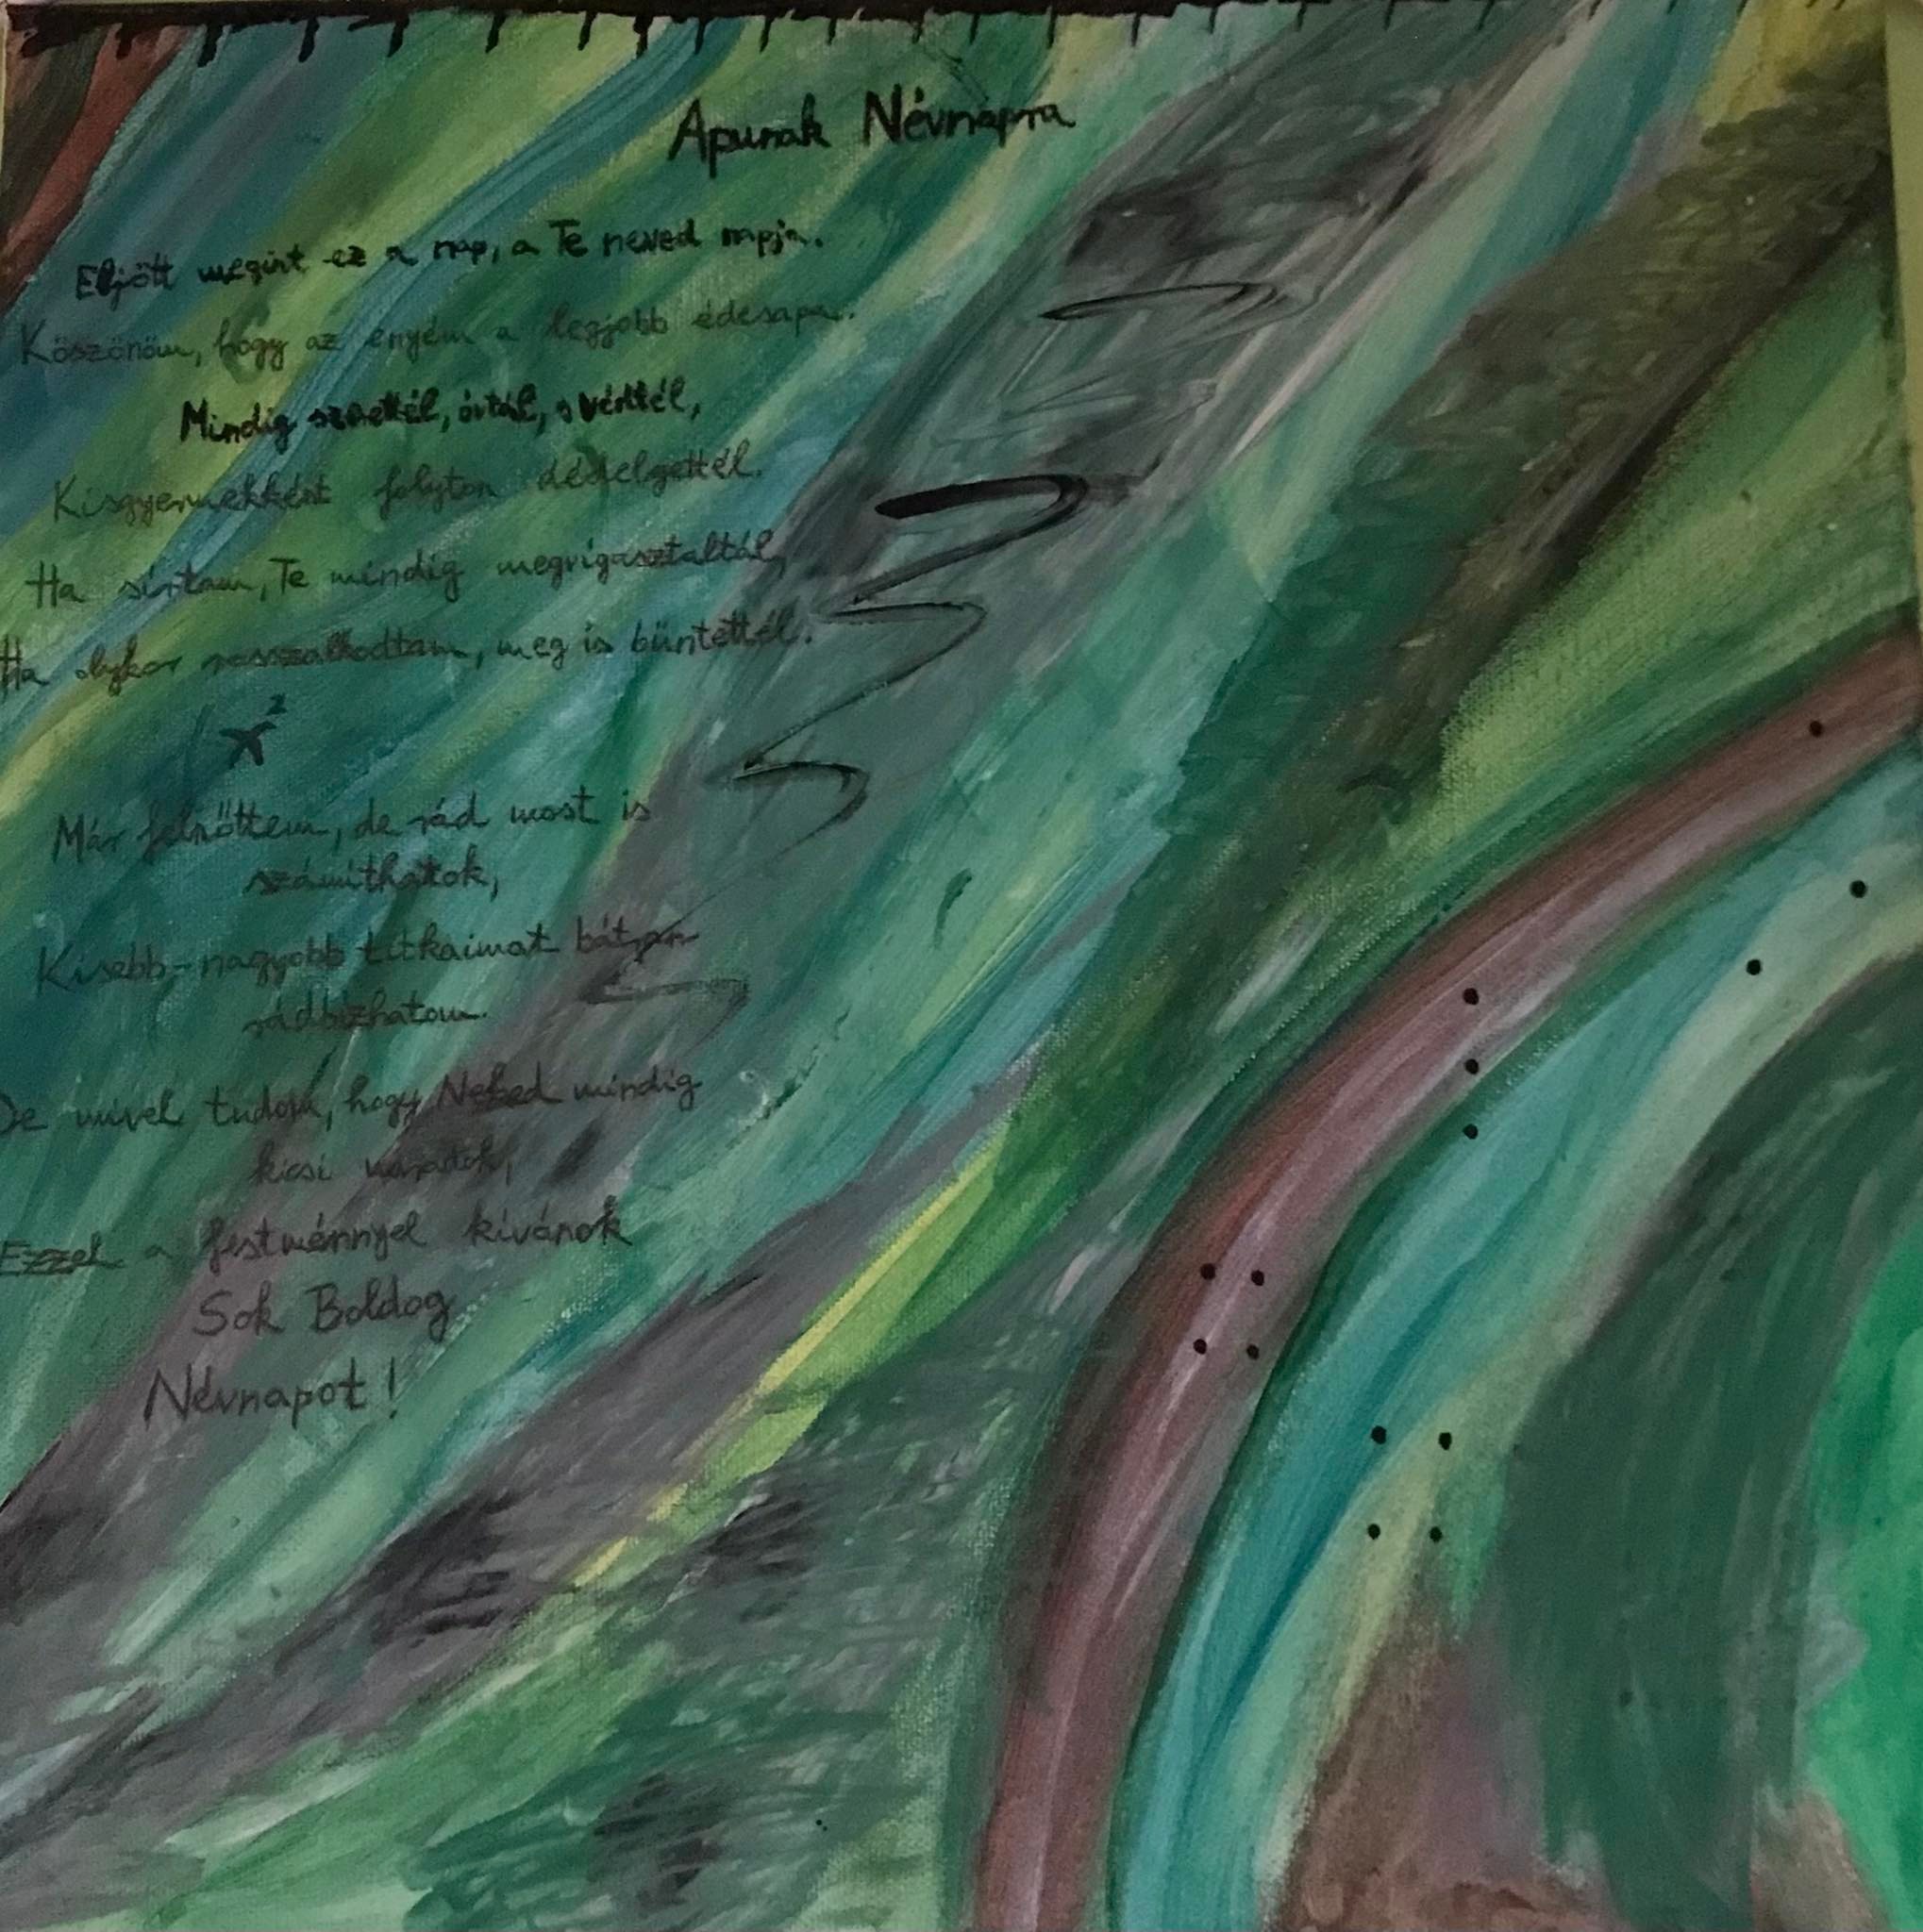 Apunak Névnapra
Eljött megint ez a nap, a Te neved napja.
Köszönöm, hogy az enyém a legjobb édesapa.
Mindig szerettél, óvtál, s védtél,
Kisgyermekként folyton dédelgettél.
Ha sírtam, Te mindig megvigasztaltál,
Ha olykor rosszalkodtam, meg is büntettél.
Már felnőttem, de rád most is
számíthatok,
Kisebb-nagyobb titkaimat bátran
rádbízhatom.
De mivel tudom, hogy Neked mindig
kicsi maradok,
Ezzel a festménnyel kívánok
Sok Boldog
Névnapot!